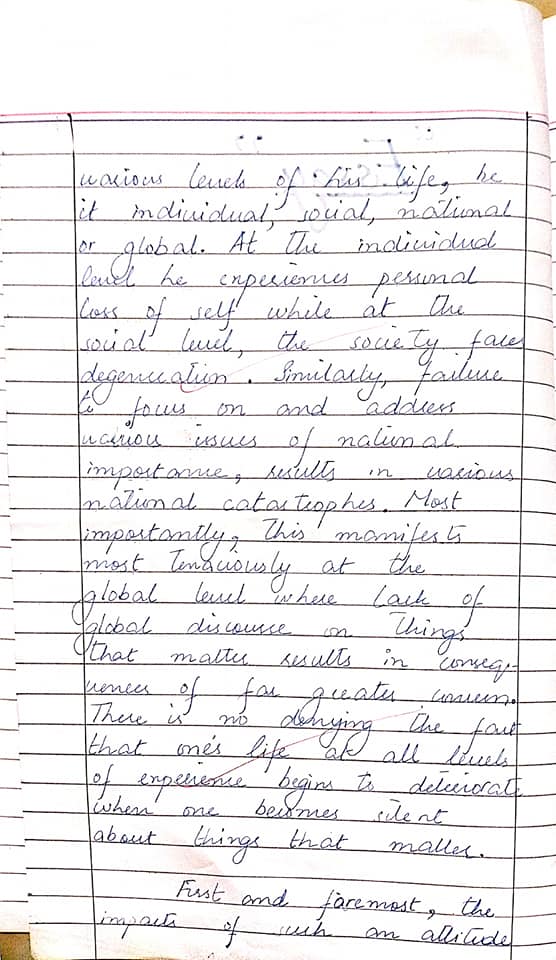 various levels of his life, be
it individual, social, national
or global. At the individual
level he experiences personal
loss of self while at the
social level, the society faces
degeneration. Similarly, failure
to focus on and address
various issues of national
importance, results in various
national catastrophes. Most
importantly, this manifests
most tenaciously at the
global level where lack of
global discourse on things
that matter results in conseq-
uences of far greater concern.
There is no denying the fact
that one's life at all levels
of experience begins to deteriorate
when one becomes silent
about things that matter.
First and foremost, the
impacts of such an attitude